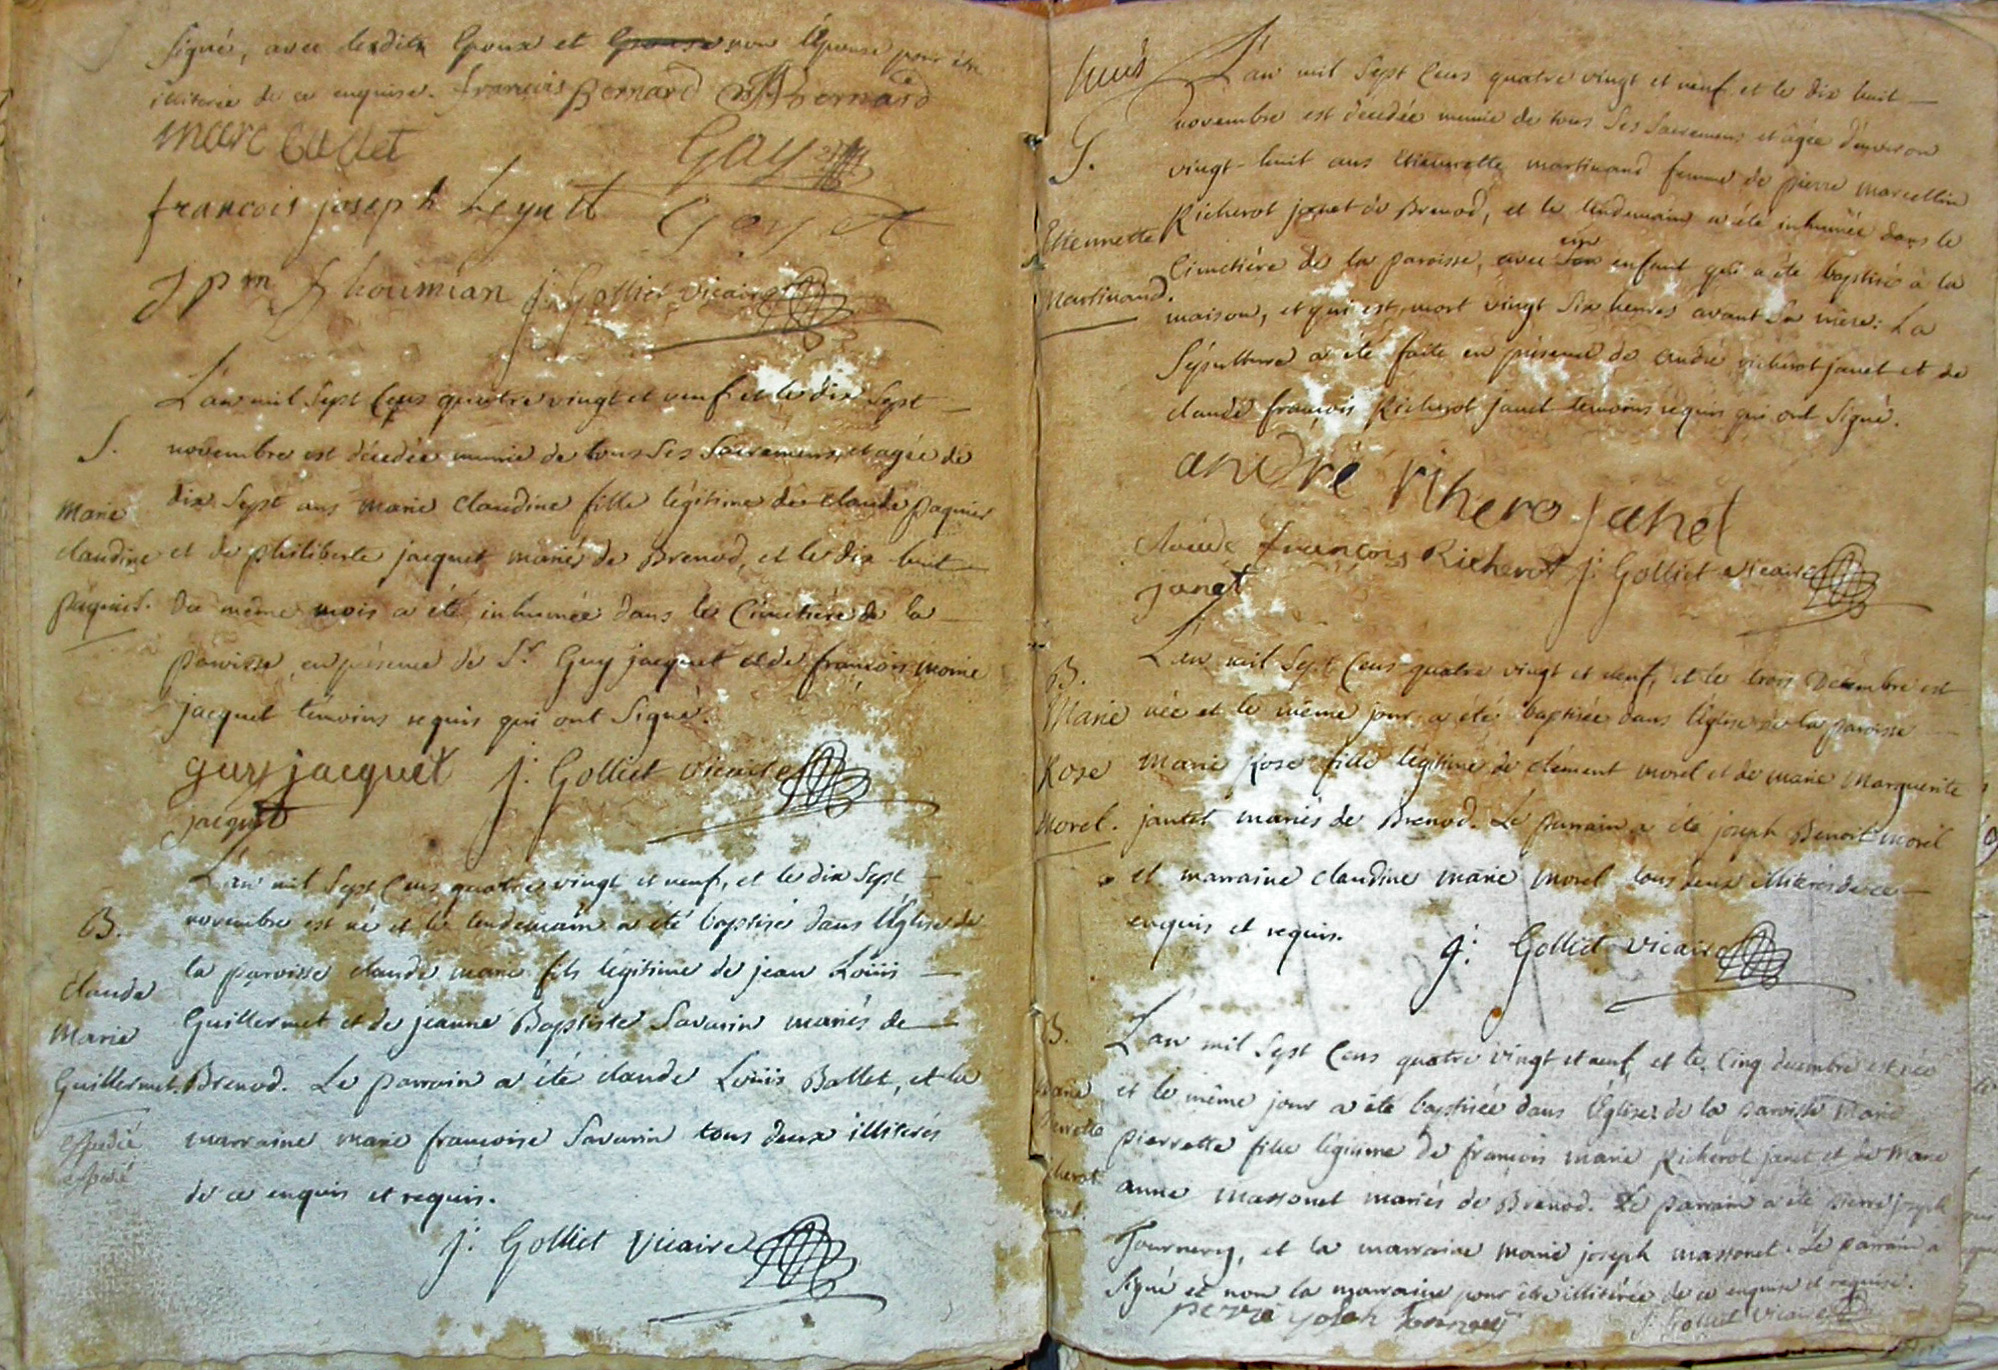 signé, avec lesdits Epoux et non l'Epouse pour être
illiterée de ce enquise. françois Bernard Bernard
marc Ballet Gay
francois joseph Leynet Goyet
jpm j: Golliet vicaire
L'an mil sept Cens quatre vingt et neuf et le dix sept
S. novembre est décedée munie de tous ses sacremens, et agée de
Marie dix sept ans marie Claudine fille légitime de claude paquiet
claudine et de philiberte jacquet mariés de Brenod, et le dix huit
paquiet. du même mois a été inhumée dans le Cimetière de la
paroisse, en présence de Sr. Guy jacquet et de françois marie
jacquet témoins requis qui ont signé.
guy jacquet j: Golliet vicaire
jacquet
L'an mil sept Cens quatre vingt et neuf, et le dix sept
B. novembre est né et le lendemain a été baptisé dans l'Eglise de
la paroisse claude marie fils légitime de jean Loüis
claude
Guillermet et de jeanne Baptiste Savarin mariés de
Marie
Guillermet. Brenod. Le parrain a été claude Loüis Ballet, et la
expedié marraine marie françoise Savarin tous deux illiterés
expedié
de ce enquis et requis.
j: Golliet vicaire
L'an mil sept Cens quatre vingt et neuf et le dix huit
novembre est décedée munie de tous ses sacremens et agée d'environ
S. vingt-huit ans etiennette martinand femme de pierre marcellin
Etiennette Richerot janet de Brenod, et le lendemain a été inhumée dans le
un
Cimetière de la paroisse, avec enfant qui a été baptisé à la
Martinand. maison, et qui est mort vingt six heures avant sa mère: La
Sépulture a été faite en présence de andré richerot janet et de
claude françois Richerot janet temoins requis qui ont signé.
andré rihero janet
claude françois Richerot j: Golliet vicaire
janet
L'an mil sept Cens quatre vingt et neuf, et le trois Decembre est
B.
Marie née et le même jour a été baptisée dans l'église de la paroisse
Rose marie Rose fille légitime de clément morel et de marie Marguerite
Morel. jantet mariés de Brenod. Le parrain a été joseph Benoit morel
et marraine claudine marie morel tous deux illiterés de ce
enquis et requis.
j: Golliet vicaire
B. L'an mil sept Cens quatre vingt et neuf et le Cinq decembre est née
et le même jour a été baptisée dans l'Eglise de la paroisse Marie
pierrette fille légitime de françois marie Richerot janet et de Marie
anne massonet mariés de Brenod. Le parrain a été pierre joseph
Tournery, et la marraine marie joseph massonet. Le parrain a
signé et non la marraine pour être illiterée de ce enquise et requise.
perre joseh j: Golliet vicaire